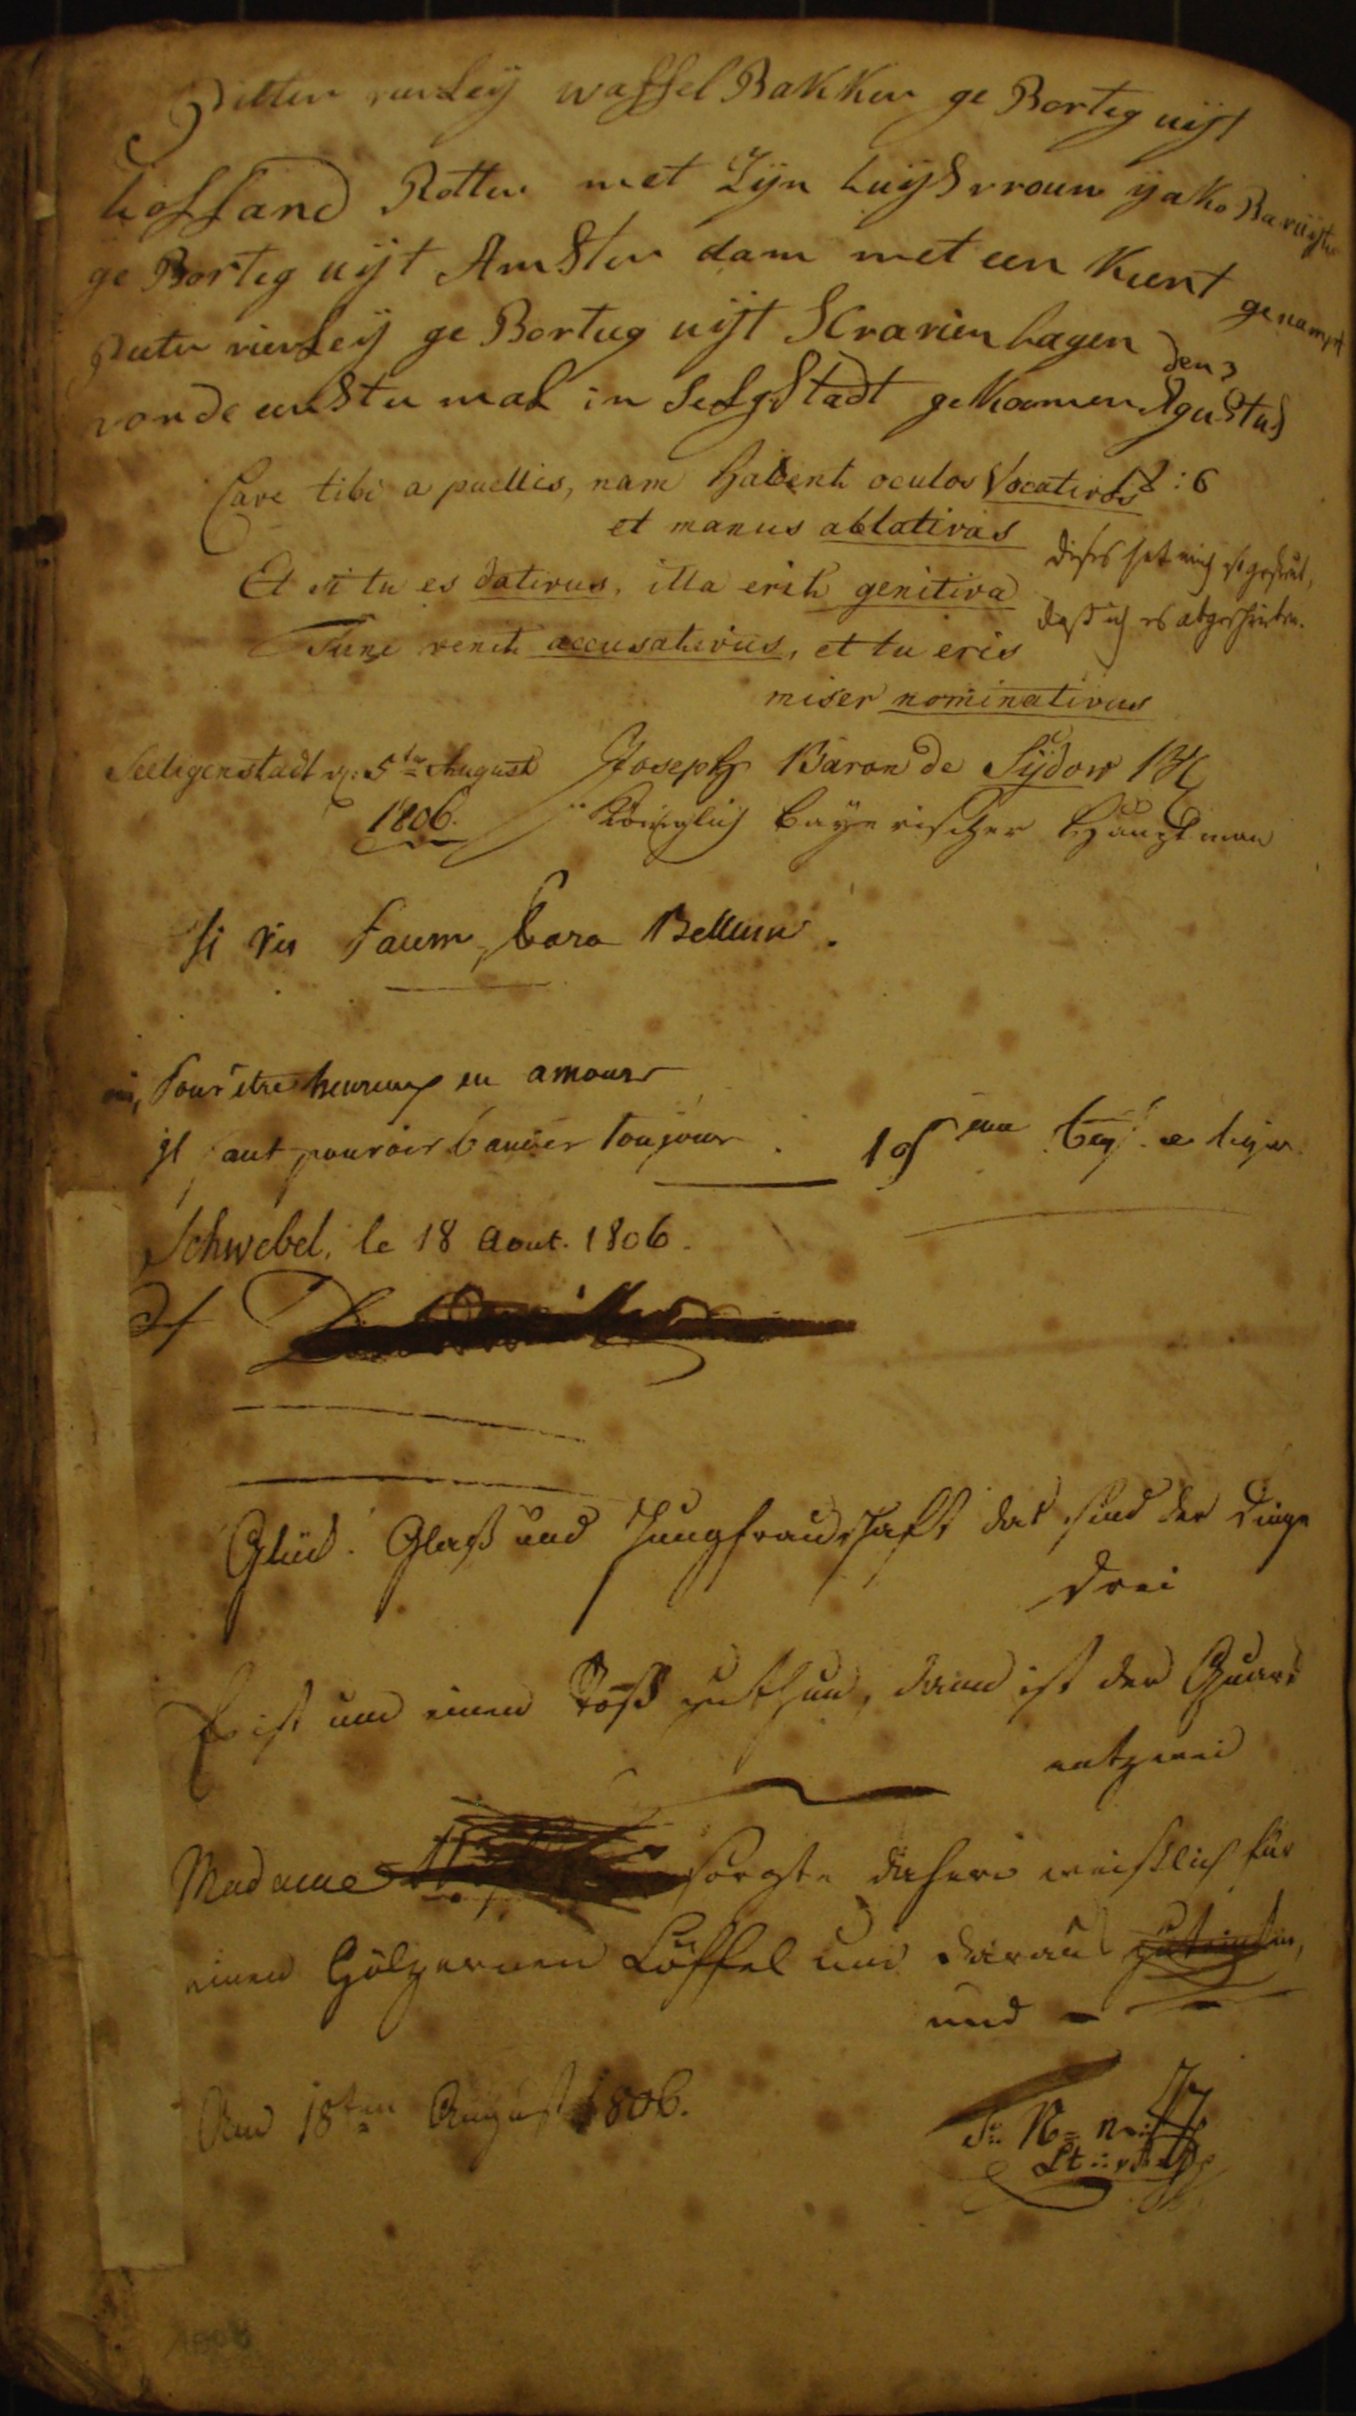 Pitter vierLeÿ waffel BakKer ge Borteg uijt
holland Rotter met Zijn huijs vrouw yako Ba ruijter
ge Borteg uijt AmSter dam met een Kient genampt
Pieter vierLeij ge Bortug uijt Scravien hagen den 3
vor de eerSte mal in SelgStadt geKommen AguStus
18:6
Cave tibi a puellis, nam habent oculos Vocativos
et manus ablativas
Et si tu es dativus, illa erit genitiva
Tunc venit accusativus, et tu eris
miser nominativus
dieses hat mich so gefreut,
daß ich es abgeschrieben.
Seeligenstadt d: 5ten August Joseph Baron de Sÿdow
1806. Königlich bayerischer Hauptman
Si vis Pacem, Para Bellum.
Pour être heureux en amour
il faut pouvoir bander toujour
Schwebel, le 18 Aout. 1806.
Glück. Glaß und Jungfrauschaft das sind der Dinge
drei
Es ist um einen Stoß zu thun, dann ist der Quark
entzwei
Madame sorgte daher weißlich für
einen hölzernen Löffel um daraus
und -
Am 18ten August 1806.